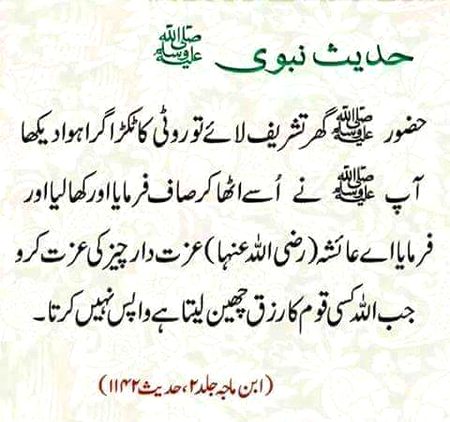 حدیث نبوی ﷺ
حضور ﷺ گھر تشریف لائے تو روٹی کا ٹکڑا گرا ہوا دیکھا
آپ ﷺ نے اُسے اٹھا کر صاف فرمایا اور کھا لیا اور
فرمایا اے عائشہ (رضی اللہ عنہا) عزت دار چیز کی عزت کرو
جب اللہ کسی قوم کا رزق چھین لیتا ہے واپس نہیں کرتا۔
(ابن ماجہ جلد ۲، حدیث ۱۱۴۲)